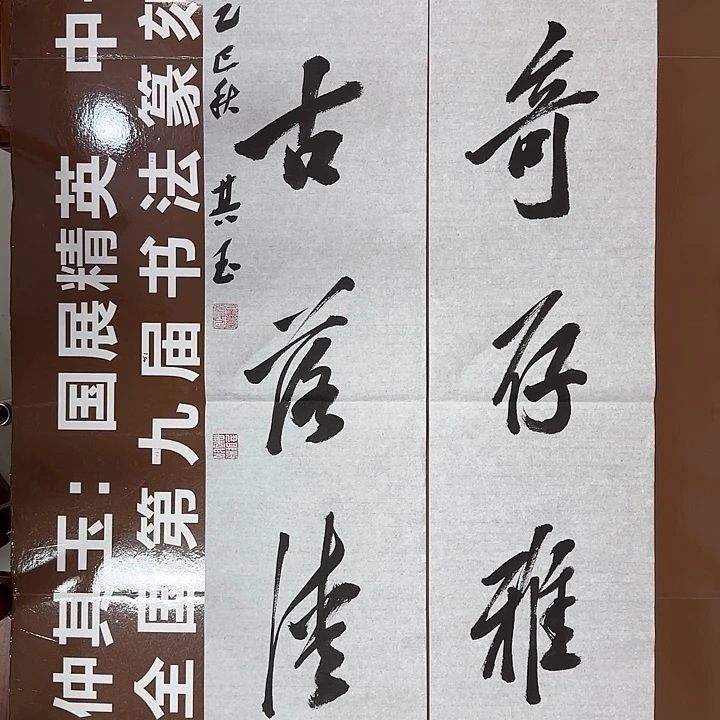 奇存雅
古落
乙巳秋 其玉
仲其玉:国展精英 中
全国第九届书法篆刻